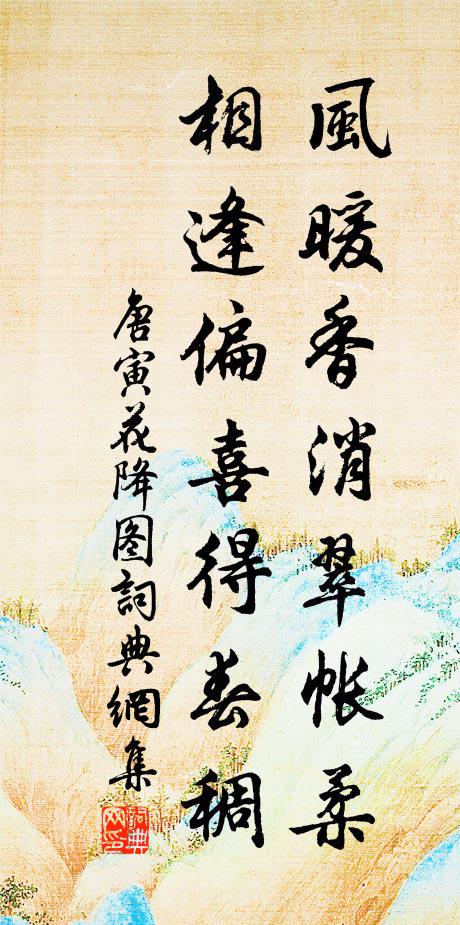 風暖香消翠帐柔
相逢偏喜得春稠
唐寅花降图詞典網集
詞典網印